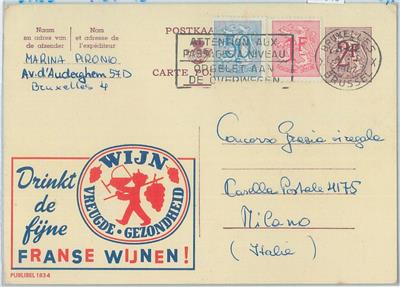 Naam
en adres van
de afzender
Nom
et adresse de
l'expéditeur
POSTKAART
CARTE POSTALE
MARINA PIRONO.
Av. d'Auderghem 57D
Bruxelles 4
ATTENTION AUX
PASSAGES A NIVEAU
OPGELET AAN
DE OVERWEGEN
BRUXELLES
BRUSSEL
2F
Concorso Grazia
Casella Postale 4175
Milano
(Italie)
WIJN
VREUGDE - GEZONDHEID
Drinkt
de
fijne
FRANSE WIJNEN!
PUBLIBEL 1834